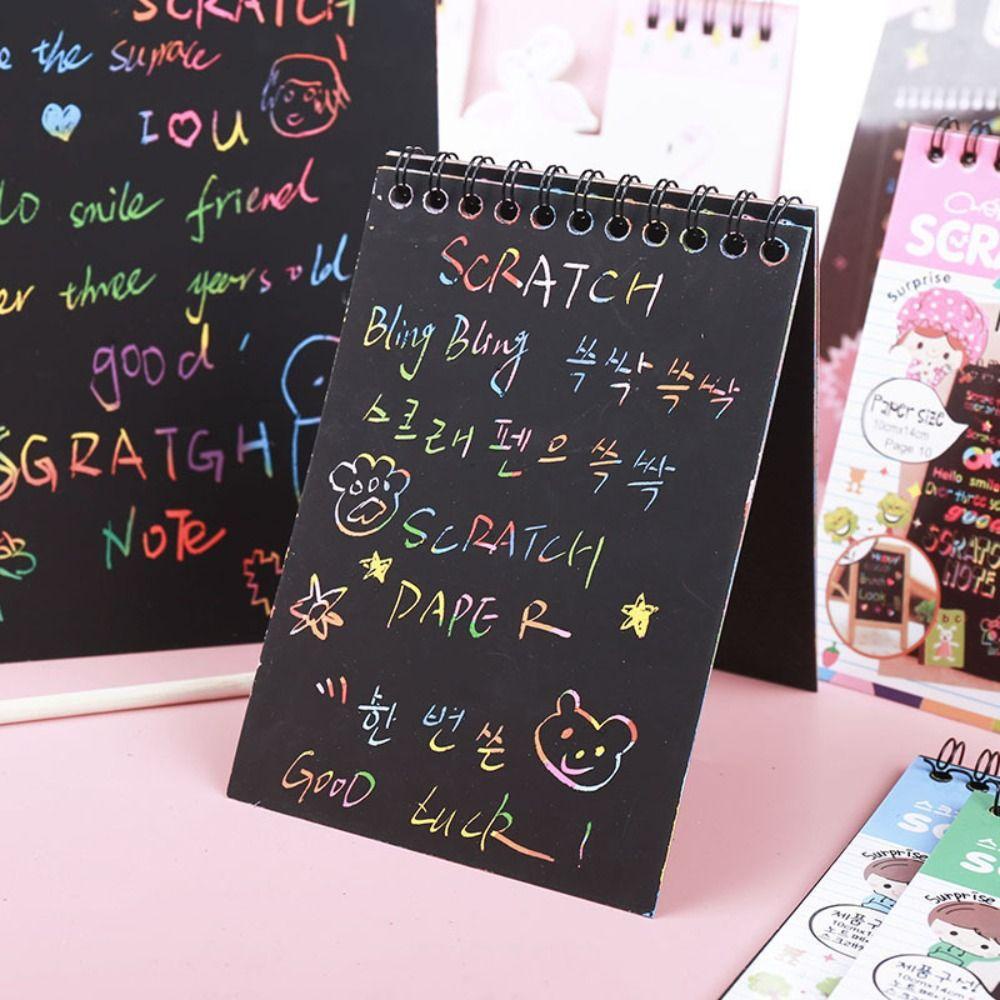 SCRATCH
the
I U
smile friend
three years old
good
SGRATGH
NOTE
SCRATCH
Bling Bling 쓱싹쓱싹
스크래펜으쓱싹
SCRATCH
PAPER
한번쓴
GOOD
LUCK!
Surprise
Paper size
10cmx14cm
Page 10
Hello smile
good
NOTE
Surprise
제품구
Surprise
제품구성
10cmx14cm